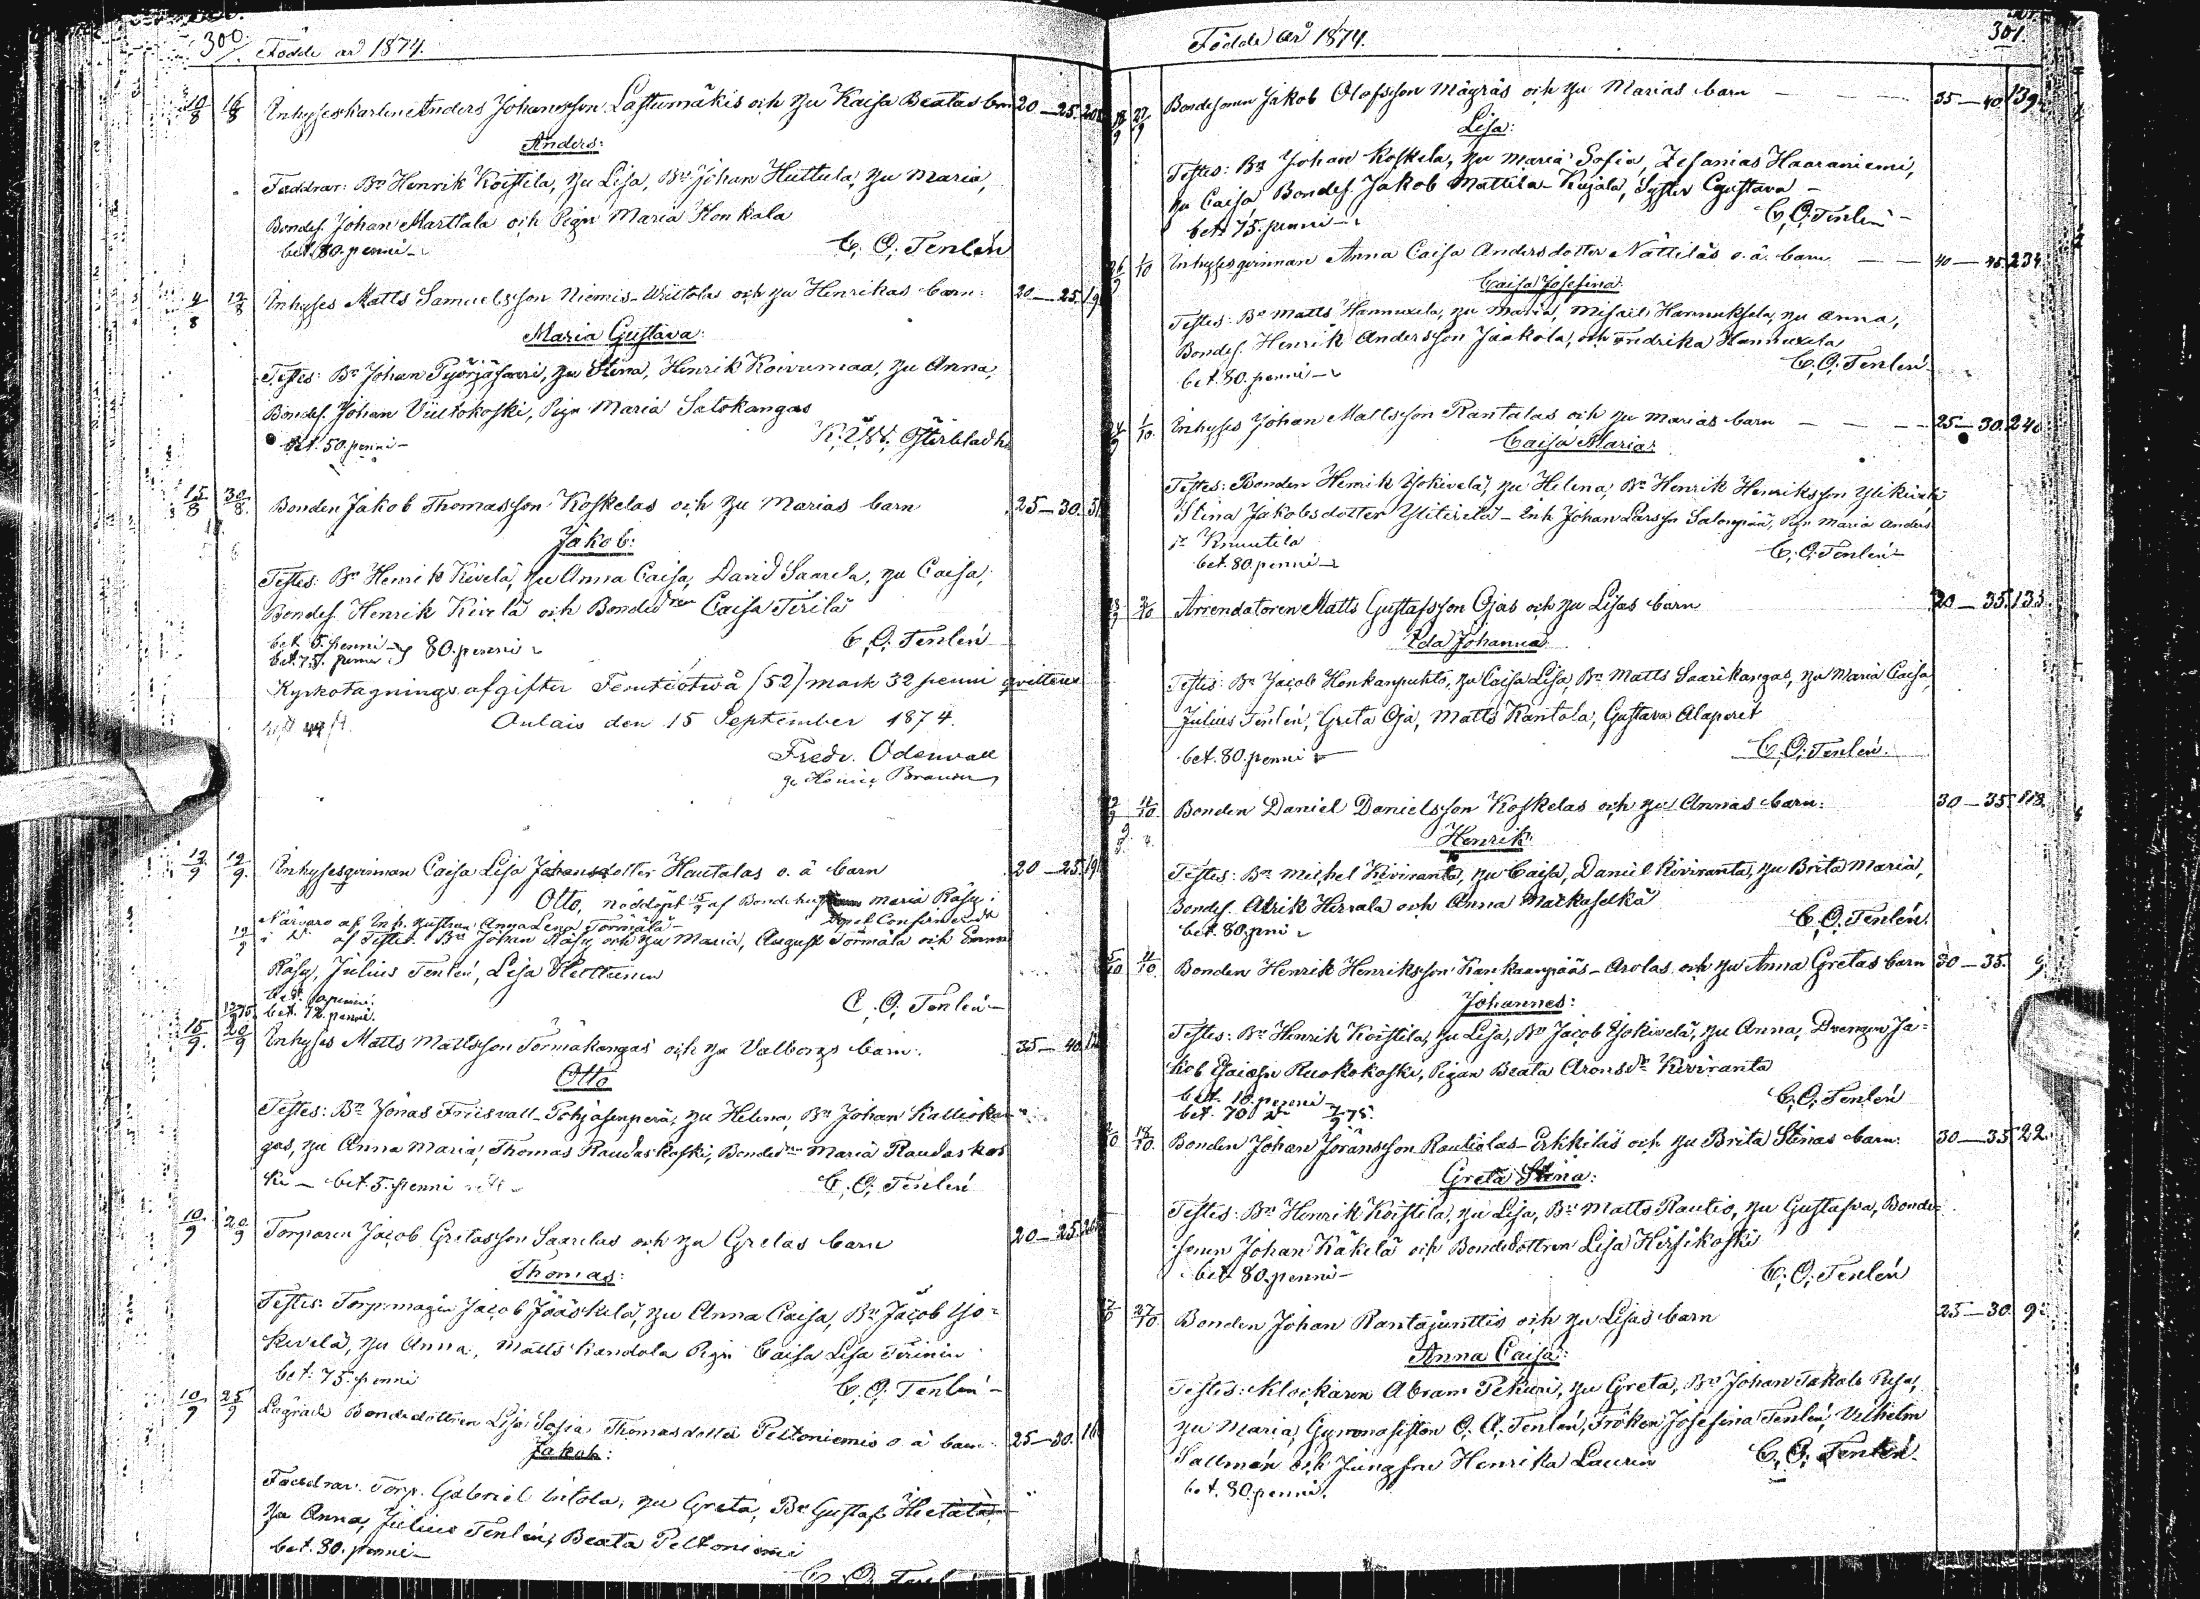 300.
Födde år 1874.
10/8 16/8 Inhyseskarlen Anders Johansson Lastumäkis och hu Kaisa Beatas barn 20-25.
Anders:
Faddrar: Bn Henrik Koistila, hu Lisa, Bn Johan Huttula, hu Maria,
Bondes. Johan Marttala och Pign Maria Honkala
bet. 80. penni
C. O. Tenlén
4/8 12/8 Inhyses Matts Samuelsson Niemis-Wiitolas och hu Henrikas barn: 20-25.
Maria Gustava:
Testes: Bn Johan Pyörjäsaari, hu Stina, Henrik Koivumaa, hu Anna,
Bondes. Johan Viitokoski, Pign Maria Salokangas
bet. 50. penni
Österbladh
15/8 30/8. Bonden Jakob Thomasson Koskelas och hu Marias barn 25-30.
Jakob:
Testes: Bn Henrik Kivelä, hu Anna Caisa, David Saarela, hu Caisa,
Bondes. Henrik Kivelä och Bondedren Caisa Tirilä
bet. 5. penni
bet. 75. penni } 80. penni
C. O. Tenlén
Kyrkotagnings afgifter Femtiotvå (52) mark 32 penni qvitteras
Oulais den 15 September 1874.
Fredr. Odenwall
12/9 12/9. Inhysesqvinnan Caisa Lisa Johansdotter Hautalas o. ä barn 20-25.
Otto, nöddöpt af Bondehustrun Maria Räsy i
Närvaro af Inh. hustrun Anna Lena Törmälä
af Testes Bn Johan Räsy och hu Maria, August Törmälä och Emma
Räsy, Julius Tenlén, Lisa Hettunen
bet. 72. penni.
C. O. Tenlén
15/9. 20/9 Inhyses Matts Mattsson Törmäkangas och hu Valborgs barn: 35-40.
Otto
Testes: Bn Jonas Friisvall-Pohjasenperä, hu Helena, Bn Johan Kalliokan
gas, hu Anna Maria, Thomas Raudaskoski, Bondedrn Maria Raudaskos
ki - bet. 5. penni
C. O. Tenlén
10/9 20/9 Torparen Jacob Gretasson Saarelas och hu Gretas barn 20-25.
Thomas:
Testes: Torp.magen Jacob Jääskelä, hu Anna Caisa, Bn Jacob Yjo=
kivelä, hu Anna, Matts Kandola Pign Caisa Lisa Tirinen
bet. 75. penni
C. O. Tenlén
10/9 25/9 Lägrade Bondedottren Lisa Sofia Thomasdotter Peltoniemis o. ä barn: 25-30.
Jakob:
Faddrar: Torp. Gabriel Intola, hu Greta, Bn Gustaf Hietala,
hu Anna, Julius Tenlén, Beata Peltoniemi
bet. 80. penni
C. O. Tenl
Födde år 1874.
301.
18/9 27/9 Bondesonen Jakob Olofsson Mäyräs och hu Marias barn 35-40. 139.
Lisa:
Testes: Bn Johan Koskela, hu Maria Sofia, Zefanias Haaraniemi,
hu Caisa Bondes. Jakob Mattila-Kujala, Syster Gustava
bet. 75. penni
C. O. Tenlén
26/9 1/10 Inhysesqvinnan Anna Caisa Andersdotter Nättiläs o. ä. barn 40-45. 234.
Caisa Josefina:
Testes: Bn Matts Hannuxela, hu Maria, Misael Hannuksela, hu Anna,
Bondes. Henrik Andersson Jaakola, och Fredrika Hannuxela
bet. 80. penni
C. O. Tenlén
24/9 1/10. Inhyses Johan Mattsson Rantalas och hu Marias barn 25-30. 240
Caisa Maria:
Testes: Bonden Henrik Yjokivelä, hu Helena, Bn Henrik Henriksson Ylikivelä
Stina Jakobsdotter Ylikivelä - Inh Johan Larsson Salonpää, Pign Maria Anders
dr Knuutila
bet. 80. penni
C. O. Tenlén
Arrendatoren Matts Gustafsson Ojas och hu Lisas barn 30-35. 133.
Ida Johanna:
Testes: Bn Jacob Honkanpuhto, hu Caisa Lisa, Bn Matts Saarikangas, hu Maria Caisa,
Julius Tenlén, Greta Oja, Matts Kantola, Gustava Alaperet
bet. 80. penni
C. O. Tenlén.
Bonden Daniel Danielsson Koskelas och hu Annas barn: 30-35. 118.
Henrik
Testes: Bn Michel Kiviranta, hu Caisa, Daniel Kiviranta, hu Brita Maria,
Bondes. Alrik Hirvala och Anna Matkaselkä
bet. 80. pni
C. O. Tenlén.
Bonden Henrik Henriksson Kankaanpääs-Arolas och hu Anna Gretas barn 30-35. 9.
Johannes:
Testes: Bn Henrik Koistila, hu Lisa, Bn Jacob Yjokivelä, hu Anna, Drengen Ja=
kob Esaiasson Ruokokoski, Pigan Beata Aronsdr Kiviranta
bet. 10. penni
bet. 70. dr
C. O. Tenlén
18/10. Bonden Johan Göransson Rautiolas-Erkkiläs och hu Brita Stinas barn: 30-35 22.
Greta Stina:
Testes: Bn Henrik Koistila, hu Lisa, Bn Matts Rautio, hu Gustafva, Bonde=
sonen Johan Käkelä och Bondedottren Lisa Hirsikoski
bet. 80. penni
C. O. Tenlén
27/10. Bonden Johan Rantajunttis och hu Lisas barn 25-30. 9.
Anna Caisa:
Testes: Klockaren Abram Pekuri, hu Greta, Bn Johan Jakola Räsy,
hu Maria, Gymnasisten O. A. Tenlén, Fröken Josefina Tenlén, Vilhelm
Sallmén och Jungfru Henrika Laurin
C. O. Tenlén.
bet. 80. penni.